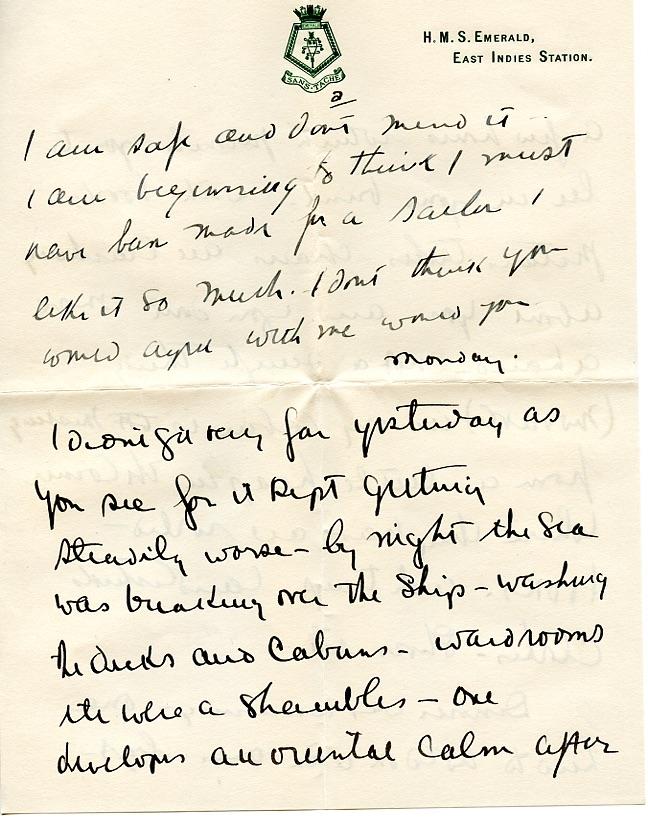 SANS TACHE
H.M.S. EMERALD,
EAST INDIES STATION.
2
I am safe and don't mind it
I am beginning to think I must
have been made for a sailor I
like it so much. I don't think you
would agree with me would you
Monday.
I didn't get very far yesterday as
you see for it kept getting
steadily worse – by night the sea
was breaking over the ship – washing
the decks and cabins – wardrooms
etc were a shambles – one
develops an oriental calm after